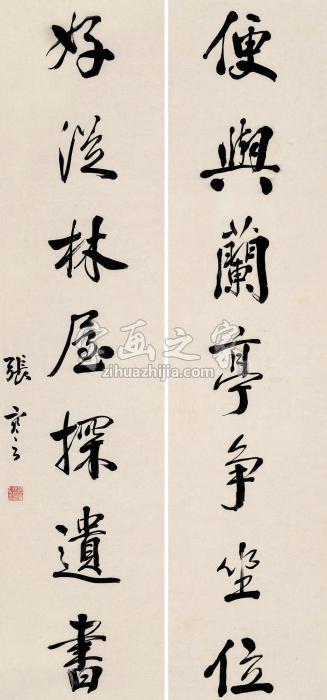 便與蘭亭争坐位
好從林屋探遺書
張寒云
字画之家
zihuazhijia.com